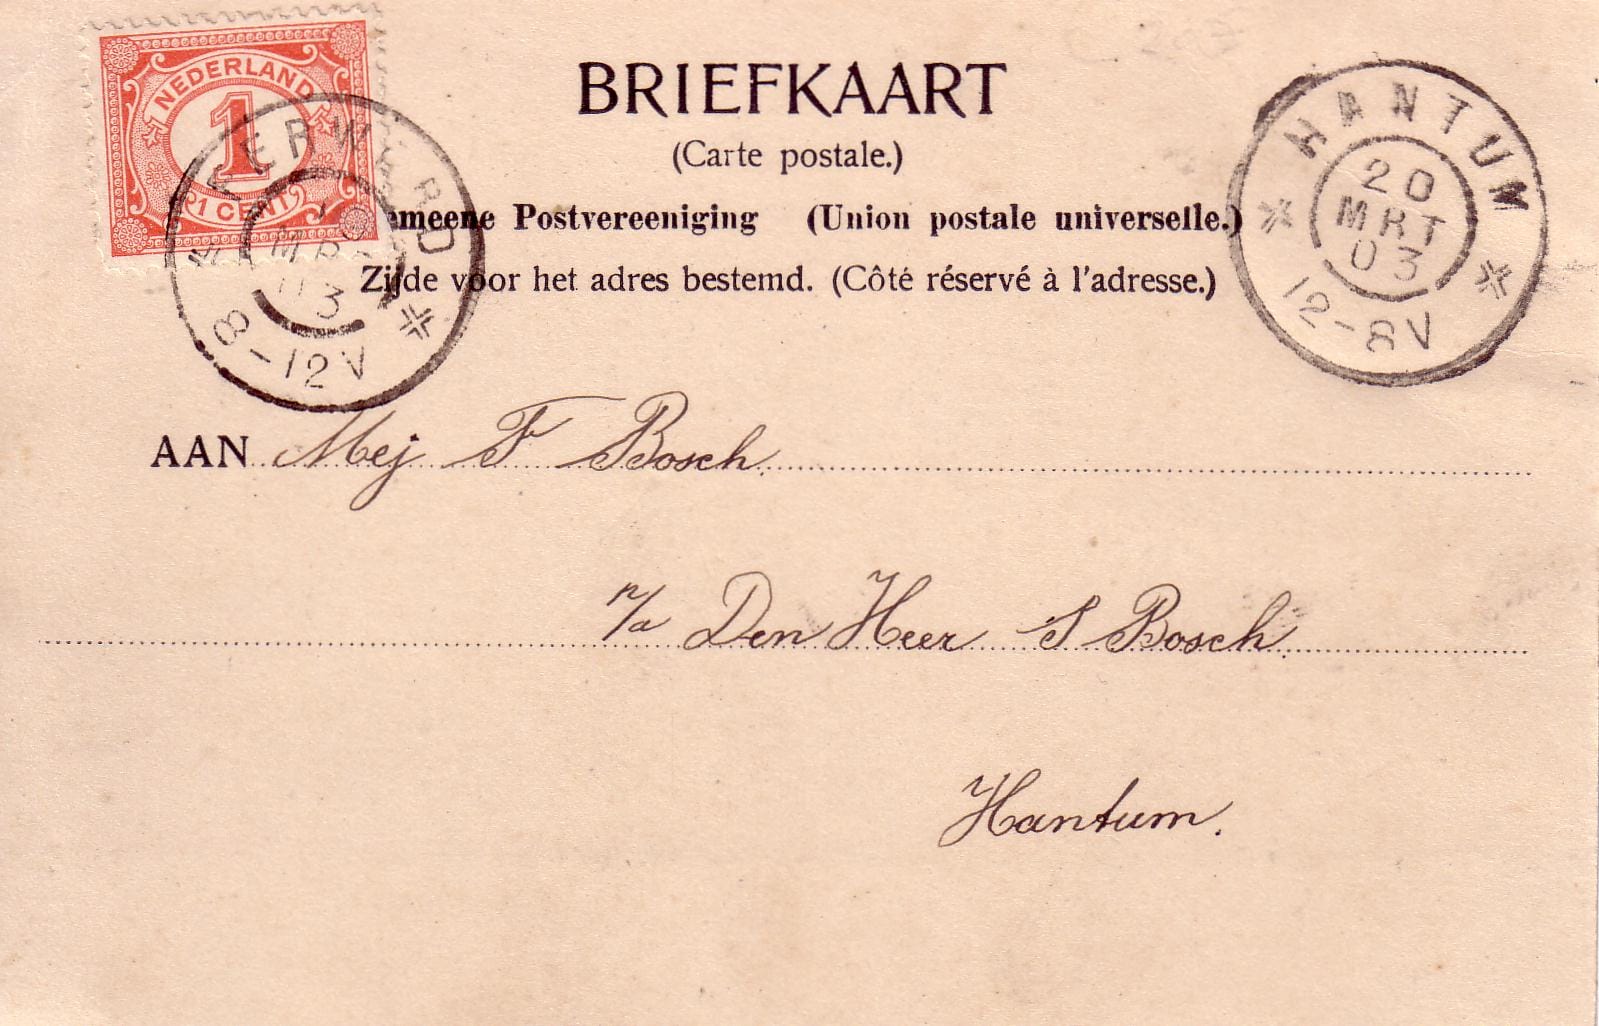 NEDERLAND
1
1 CENT
BRIEFKAART
(Carte postale.)
meene Postvereeniging (Union postale universelle.)
Zijde voor het adres bestemd. (Côté réservé à l'adresse.)
8-12V
HANTUM
20
MRT
03
12-8V
AAN Mej F Bosch
p/a Den Heer S Bosch
Hantum.